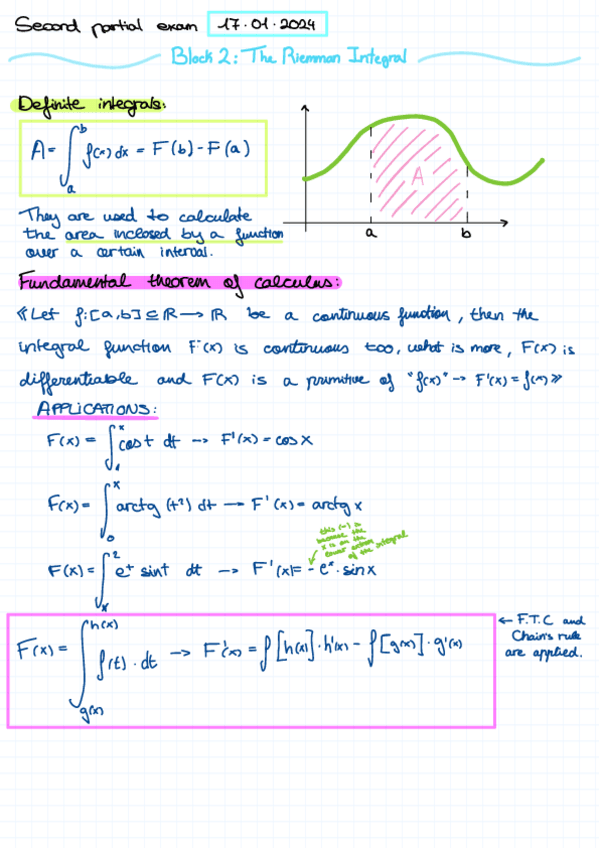 Second partial exam 17.01.2024
Block 2: The Riemman Integral
Definite integrals:
A = ∫_a^b f(x) dx = F(b) - F(a)
They are used to calculate
the area inclosed by a function
over a certain interval.
A
a b
Fundamental theorem of calculus:
《Let f:[a,b]⊆ℝ→ℝ be a continuous function, then the
integral function F(x) is continuous too, what is more, F(x) is
differentiable and F(x) is a primitive of "f(x)" → F'(x) = f(x)》
APPLICATIONS:
F(x) = ∫_1^x cost dt → F'(x) = cosx
F(x) = ∫_0^x arctg (t²) dt → F'(x) = arctg x
this (-) is
because the
x is on the
lower
of the integral
F(x) = ∫_x^2 e^t sint dt → F'(x) = - e^x · sinx
F(x) = ∫_{g(x)}^{h(x)} f(t) · dt → F'(x) = f[h(x)] · h'(x) - f[g(x)] · g'(x)
← F.T.C and
Chain's rule
are applied.